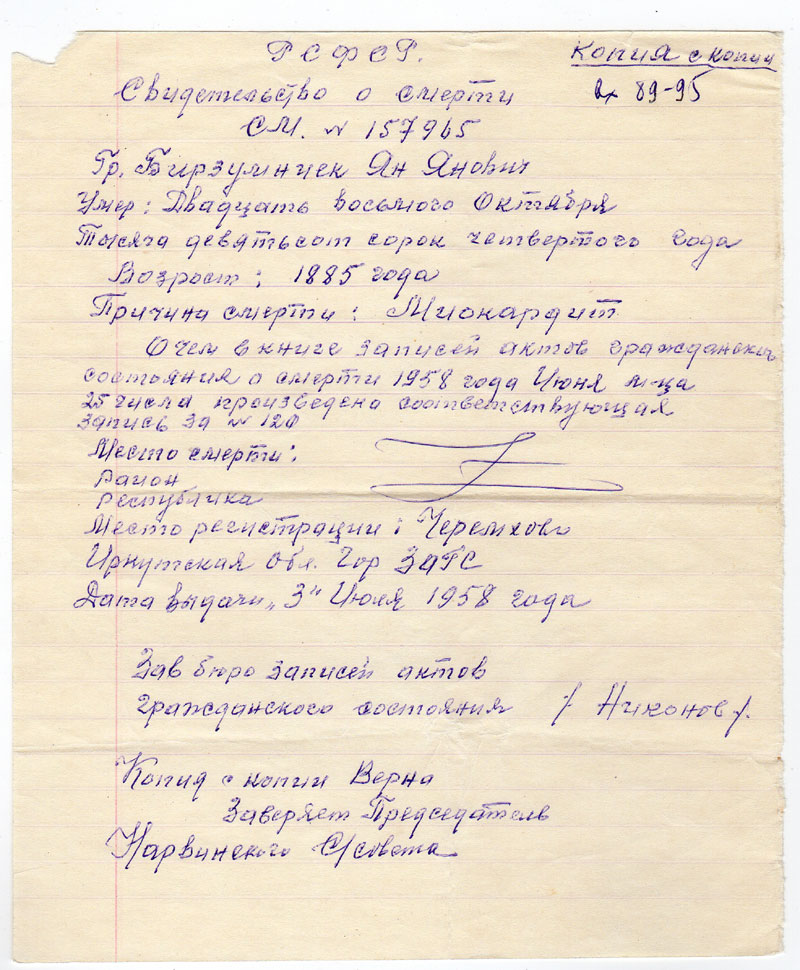 РСФСР.
Копия с копии
Свидетельство о смерти
89-95
СМ. № 157965
Гр. Бирзумниек Ян Янович
Умер: Двадцать восьмого Октября
Тысяча девятьсот сорок четвертого года
Возрост: 1885 года
Причина смерти: Миокардит
О чем в книге записей актов гражданског
состояния о смерти 1958 года Июня м-ца
25 числа произведена соответствующая
запись за № 120
Место смерти:
район
республика
Место регистрации: Черемхово
Иркутская Обл. Гор ЗАГС
Дата выдачи „3" Июля 1958 года
Зав бюро записей актов
гражданского состояния /Никонов/.
Копия с копии Верна
Заверяет Председатель
Нарвинского С/совета